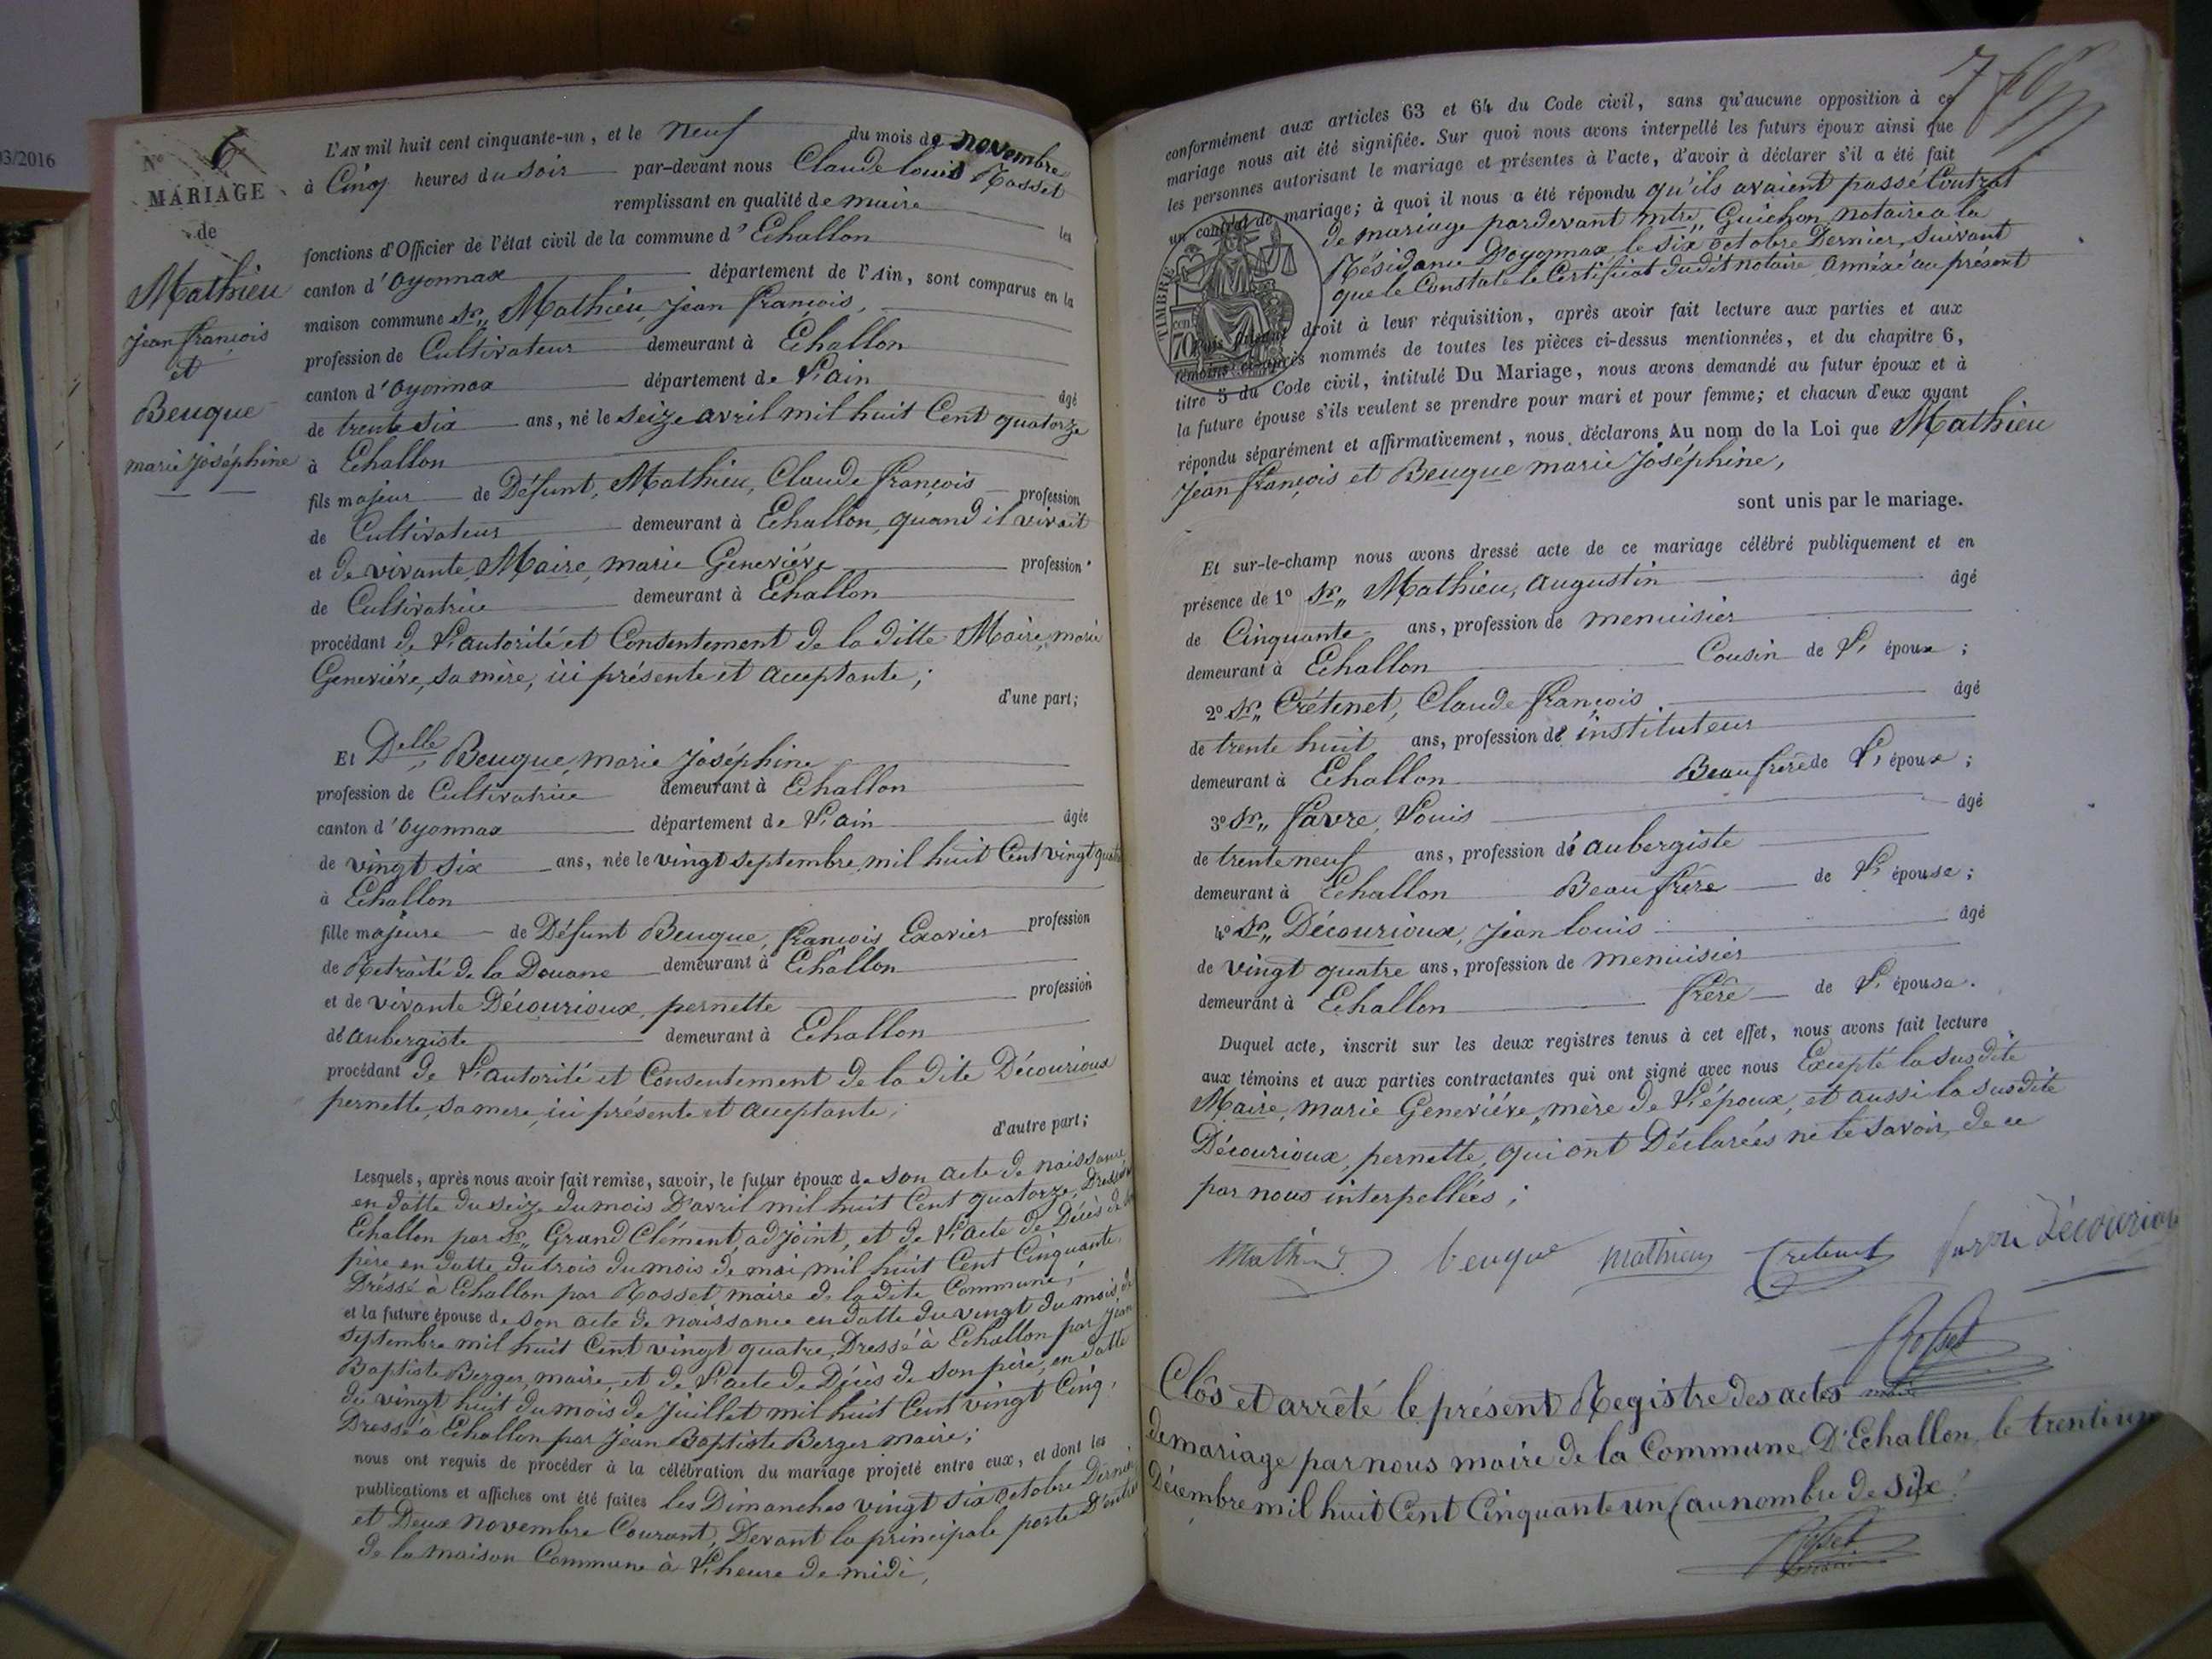 03/2016
N° 6
MARIAGE
de
Mathieu
jean françois
et
Beuque
marie joséphine
L'AN mil huit cent cinquante-un, et le neuf du mois de novembre
à Cinq heures du soir par-devant nous Claude louis Rosset
remplissant en qualité de maire les
fonctions d'Officier de l'état civil de la commune d' Echallon
canton d' oyonnax département de l'Ain, sont comparus en la
maison commune Sr,, Mathieu, jean françois,
profession de Cultivateur demeurant à Echallon
canton d' oyonnax département de L'ain âgé
de trente six ans, né le seize avril mil huit Cent quatorze
à Echallon
fils majeur de Défunt, Mathieu, Claude françois profession
de Cultivateur demeurant à Echallon, quand il vivait
et de vivante, Maire, marie Geneviéve profession
de Cultivatrice demeurant à Echallon
procédant de L'autorité et Consentement de la ditte Maire, marie
Geneviéve, sa mère, ici présente et acceptante;
d'une part;
Et Delle,, Beuque, marie joséphine
profession de Cultivatrice demeurant à Echallon
canton d' oyonnax département de L'ain âgée
de vingt six ans, née le vingt septembre mil huit Cent vingt quatre
à Echallon
fille majeure de Défunt Beuque, françois Exavier profession
de Retraité de la Douane demeurant à Echallon
et de vivante Décourioux, pernette profession
dé aubergiste demeurant à Echallon
procédant de L'autorité et Consentement de la dite Décourioux
pernette, sa mere, ici présente et acceptante;
d'autre part;
Lesquels, après nous avoir fait remise, savoir, le futur époux de son acte de naissance
en datte du seize du mois D'avril mil huit Cent quatorze, Dressé à
Echallon par Sr,, Grand Clément, adjoint, et de L'acte de Décès de son
père en datte du trois du mois de mai, mil huit Cent Cinquante,
Dréssé à Echallon par Rosset maire de la dite Commune;
et la future épouse de son acte de naissance en datte du vingt du mois de
septembre mil huit Cent vingt quatre, Dressé à Echallon par jean
Baptiste Berger, maire, et de L'acte de Décès de son père, en datte
du vingt huit du mois de juillet mil huit Cent vingt Cinq,
Dressé à Echallon par jean Baptiste Berger maire;
nous ont requis de procéder à la célébration du mariage projeté entre eux, et dont les
publications et affiches ont été faites les Dimanches vingt six octobre Dernier
et Deux novembre Courant, Devant la principale porte D'entrée
de la maison Commune à L'heure de midi,
7
conformément aux articles 63 et 64 du Code civil, sans qu'aucune opposition à ce
mariage nous ait été signifiée. Sur quoi nous avons interpellé les futurs époux ainsi que
les personnes autorisant le mariage et présentes à l'acte, d'avoir à déclarer s'il a été fait
un contrat de mariage; à quoi il nous a été répondu qu'ils avaient passé Contrat
de mariage pardevant mtre,, Guichon, notaire a la
Résidance D'oyonnax le six octobre Dernier, suivant
que le Constate le Certificat dudit notaire annéxé au présent
TIMBRE
70 cent
Puis faisant droit à leur réquisition, après avoir fait lecture aux parties et aux
témoins ci-après nommés de toutes les pièces ci-dessus mentionnées, et du chapitre 6,
titre 5 du Code civil, intitulé Du Mariage, nous avons demandé au futur époux et à
la future épouse s'ils veulent se prendre pour mari et pour femme; et chacun d'eux ayant
répondu séparément et affirmativement, nous déclarons Au nom de la Loi que Mathieu
jean françois et Beuque marie joséphine,
sont unis par le mariage.
Et sur-le-champ nous avons dressé acte de ce mariage célébré publiquement et en
présence de 1° Sr,, Mathieu, augustin âgé
de Cinquante ans, profession de menuisier
demeurant à Echallon Cousin de L' époux;
2° Sr,, Crétenet, Claude françois âgé
de trente huit ans, profession dé instituteur
demeurant à Echallon Beaufrère de L' époux;
3° Sr,, favre, Louis âgé
de trente neuf ans, profession dé aubergiste
demeurant à Echallon Beau frère de L' épouse;
4° Sr,, Décourioux, jean louis âgé
de vingt quatre ans, profession de menuisier
demeurant à Echallon frère de L' épouse.
Duquel acte, inscrit sur les deux registres tenus à cet effet, nous avons fait lecture
aux témoins et aux parties contractantes qui ont signé avec nous Excepté la susdite
Maire, marie Geneviéve, mère de L'époux, et aussi la susdite
Décourioux, pernette, qui ont Déclarées ne le savoir, de ce
par nous interpellées;
Mathieu beuque mathieu Cretenet favre Décourioux
Rosset
maire
Clôs et arrêté le présent Registre des actes
de mariage par nous maire de la Commune D'Echallon, le trente un
Décembre mil huit Cent Cinquante un (au nombre de six)
Rosset
maire